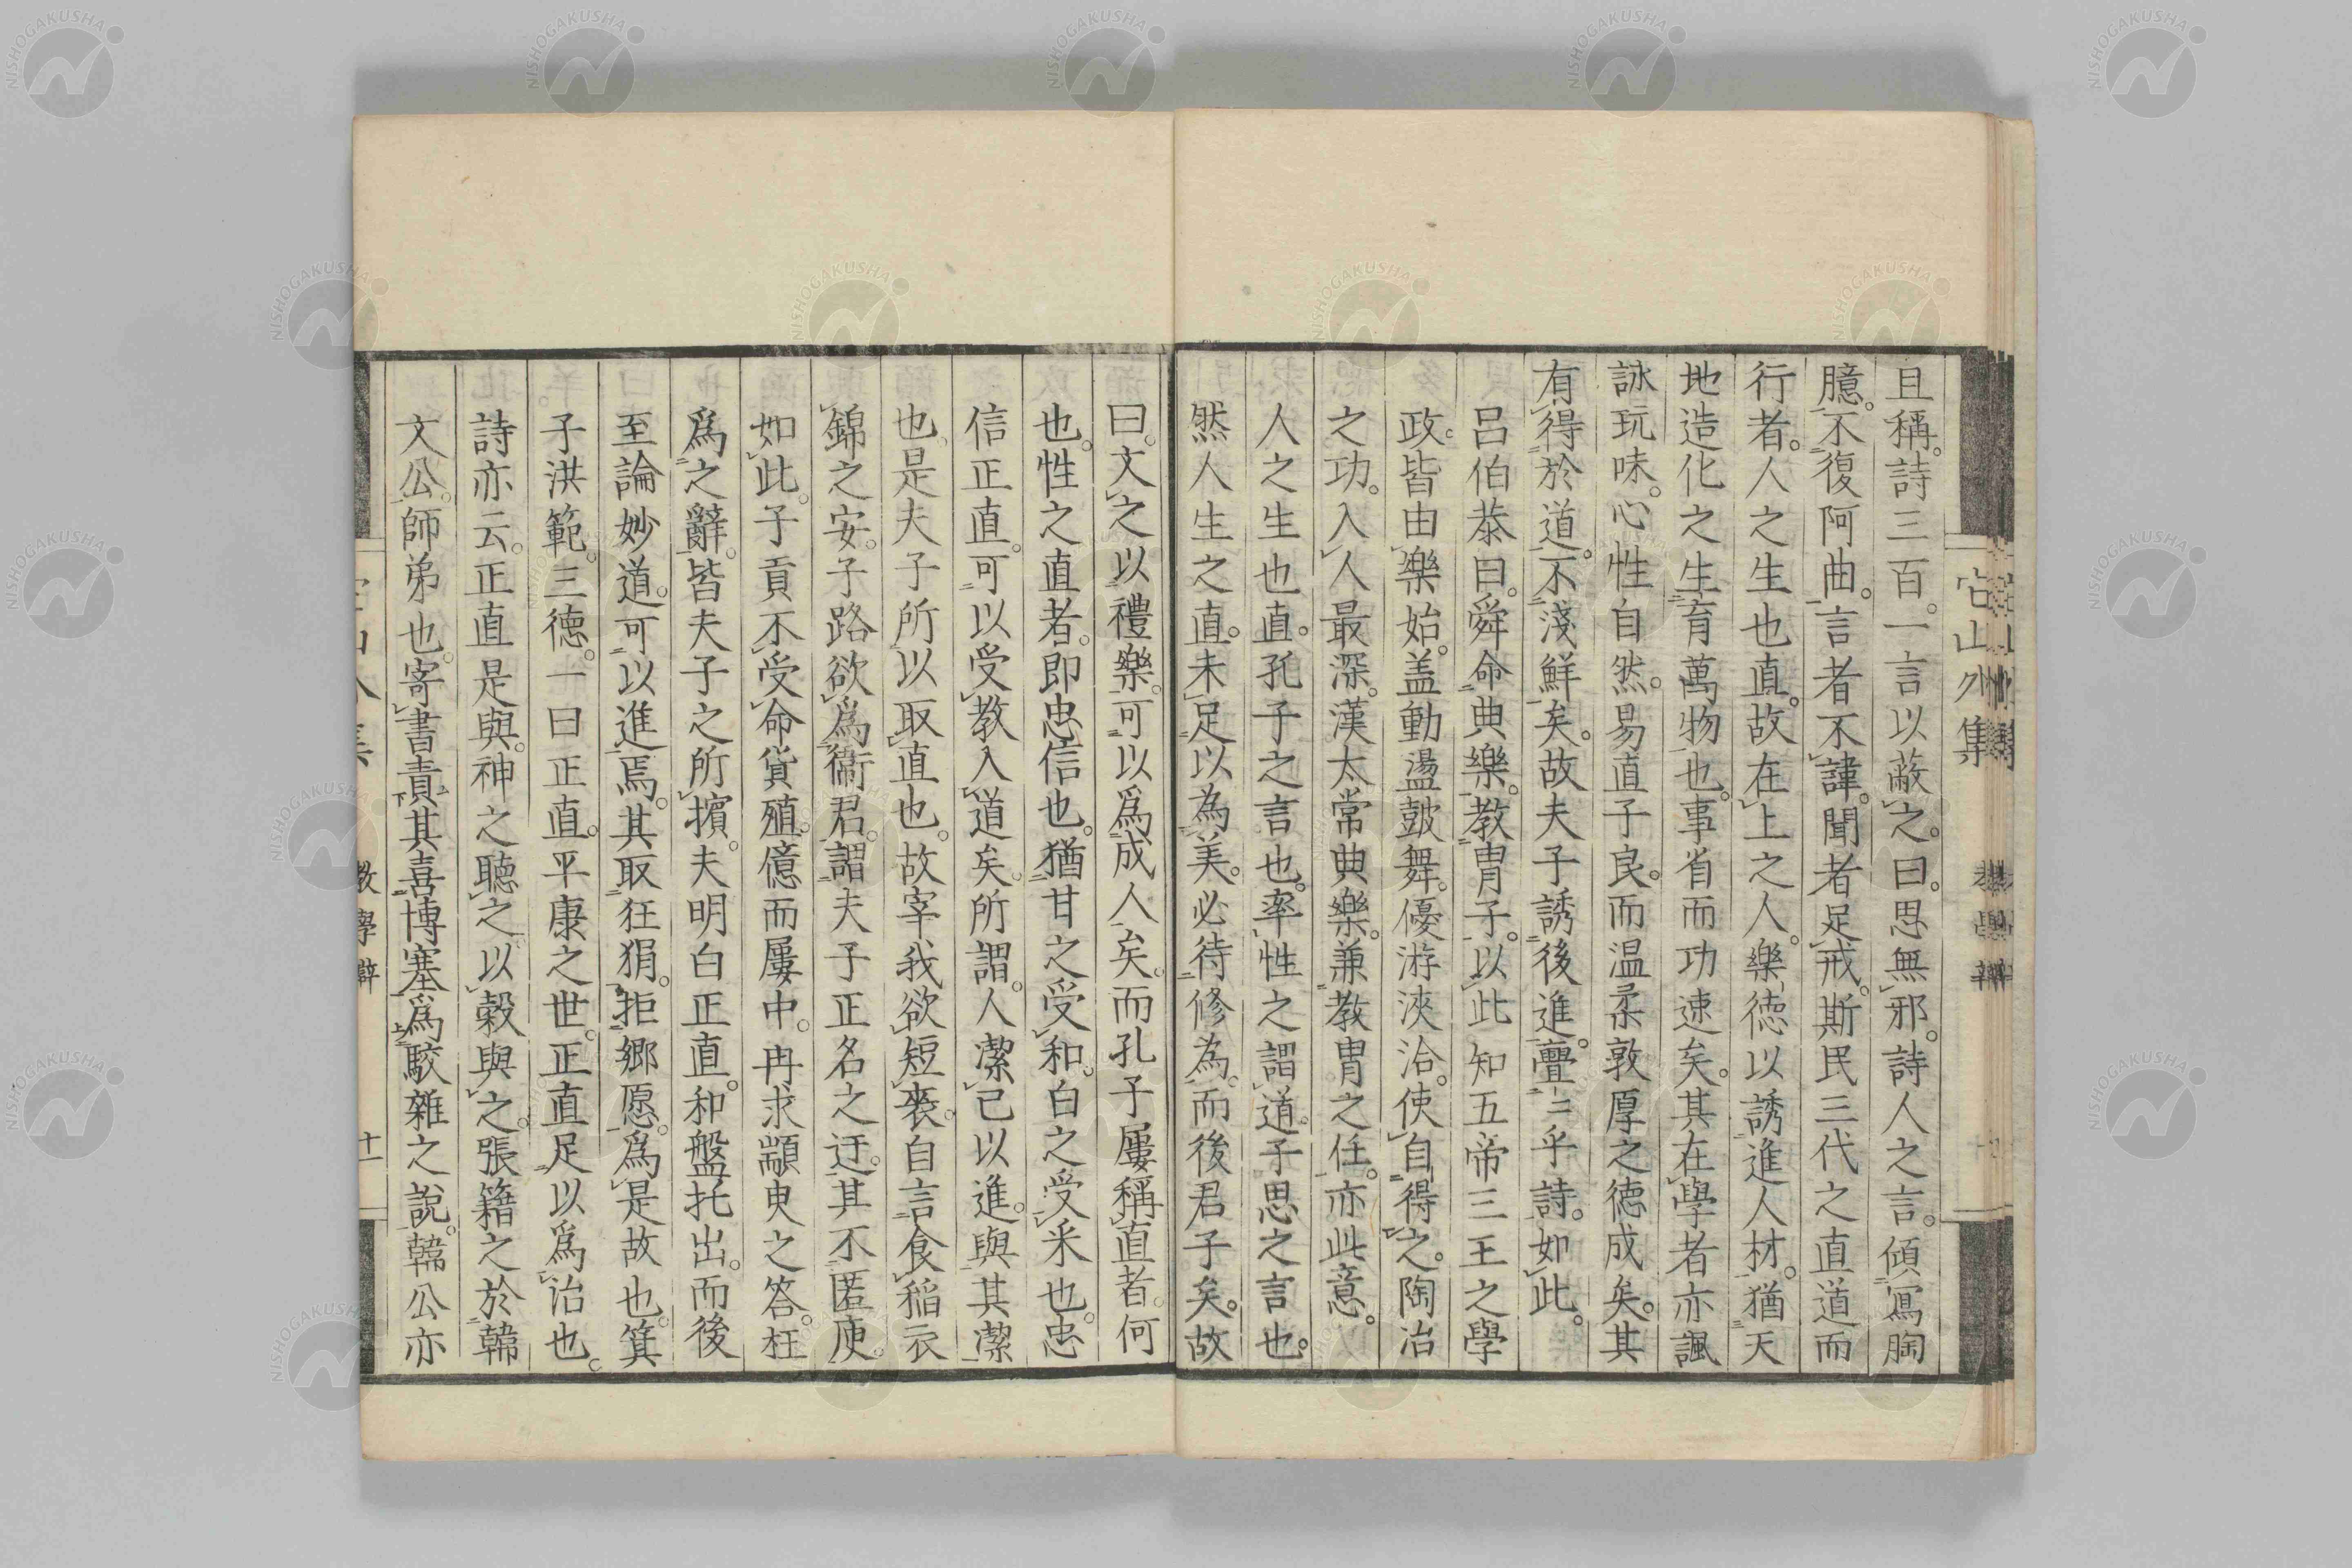 且稱。詩三百。一言以蔽之。曰。思無邪。詩人之言。傾寫胸
臆。不復阿曲。言者不諱。聞者足戒。斯民三代之直道而
行者。人之生也直。故在上之人。樂德以誘進人材。猶天
地造化之生育萬物也。事省而功速矣。其在學者亦諷
詠玩味。心性自然。易直子良。而温柔敦厚之德成矣。其
有得於道。不淺鮮矣。故夫子誘後進。亹〻乎詩。如此。
呂伯恭曰。舜命典樂。教胄子。以此知五帝三王之學
政。皆由樂始。盖動盪鼓舞。優游浹洽。使自得之。陶冶
之功。入人最深。漢太常典樂。兼教胄之任。亦此意。
人之生也直。孔子之言也。率性之謂道。子思之言也。
然人生之直。未足以為美。必待修為。而後君子矣。故
曰。文之以禮樂。可以爲成人矣。而孔子屢稱直者。何
也。性之直者。即忠信也。猶甘之受和。白之受采也。忠
信正直。可以受教入道矣。所謂。人潔己以進。與其潔
也。是夫子所以取直也。故宰我欲短喪。自言食稲衣
錦之安。子路欲爲衞君。謂夫子正名之迂。其不匿庾。
如此。子貢不受命貨殖。億而屢中。冉求顓臾之答。枉
爲之辭。皆夫子之所擯。夫明白正直。和盤托出。而後
至論妙道。可以進焉。其取狂狷。拒郷愿。爲是故也。箕
子洪範。三德。一曰正直。平康之世。正直足以爲治也。
詩亦云。正直是與。神之聽之。以穀與之。張籍之於韓
文公。師弟也。寄書責其喜博塞爲駁雜之說。韓公亦
宕山外集
教學辯
十一